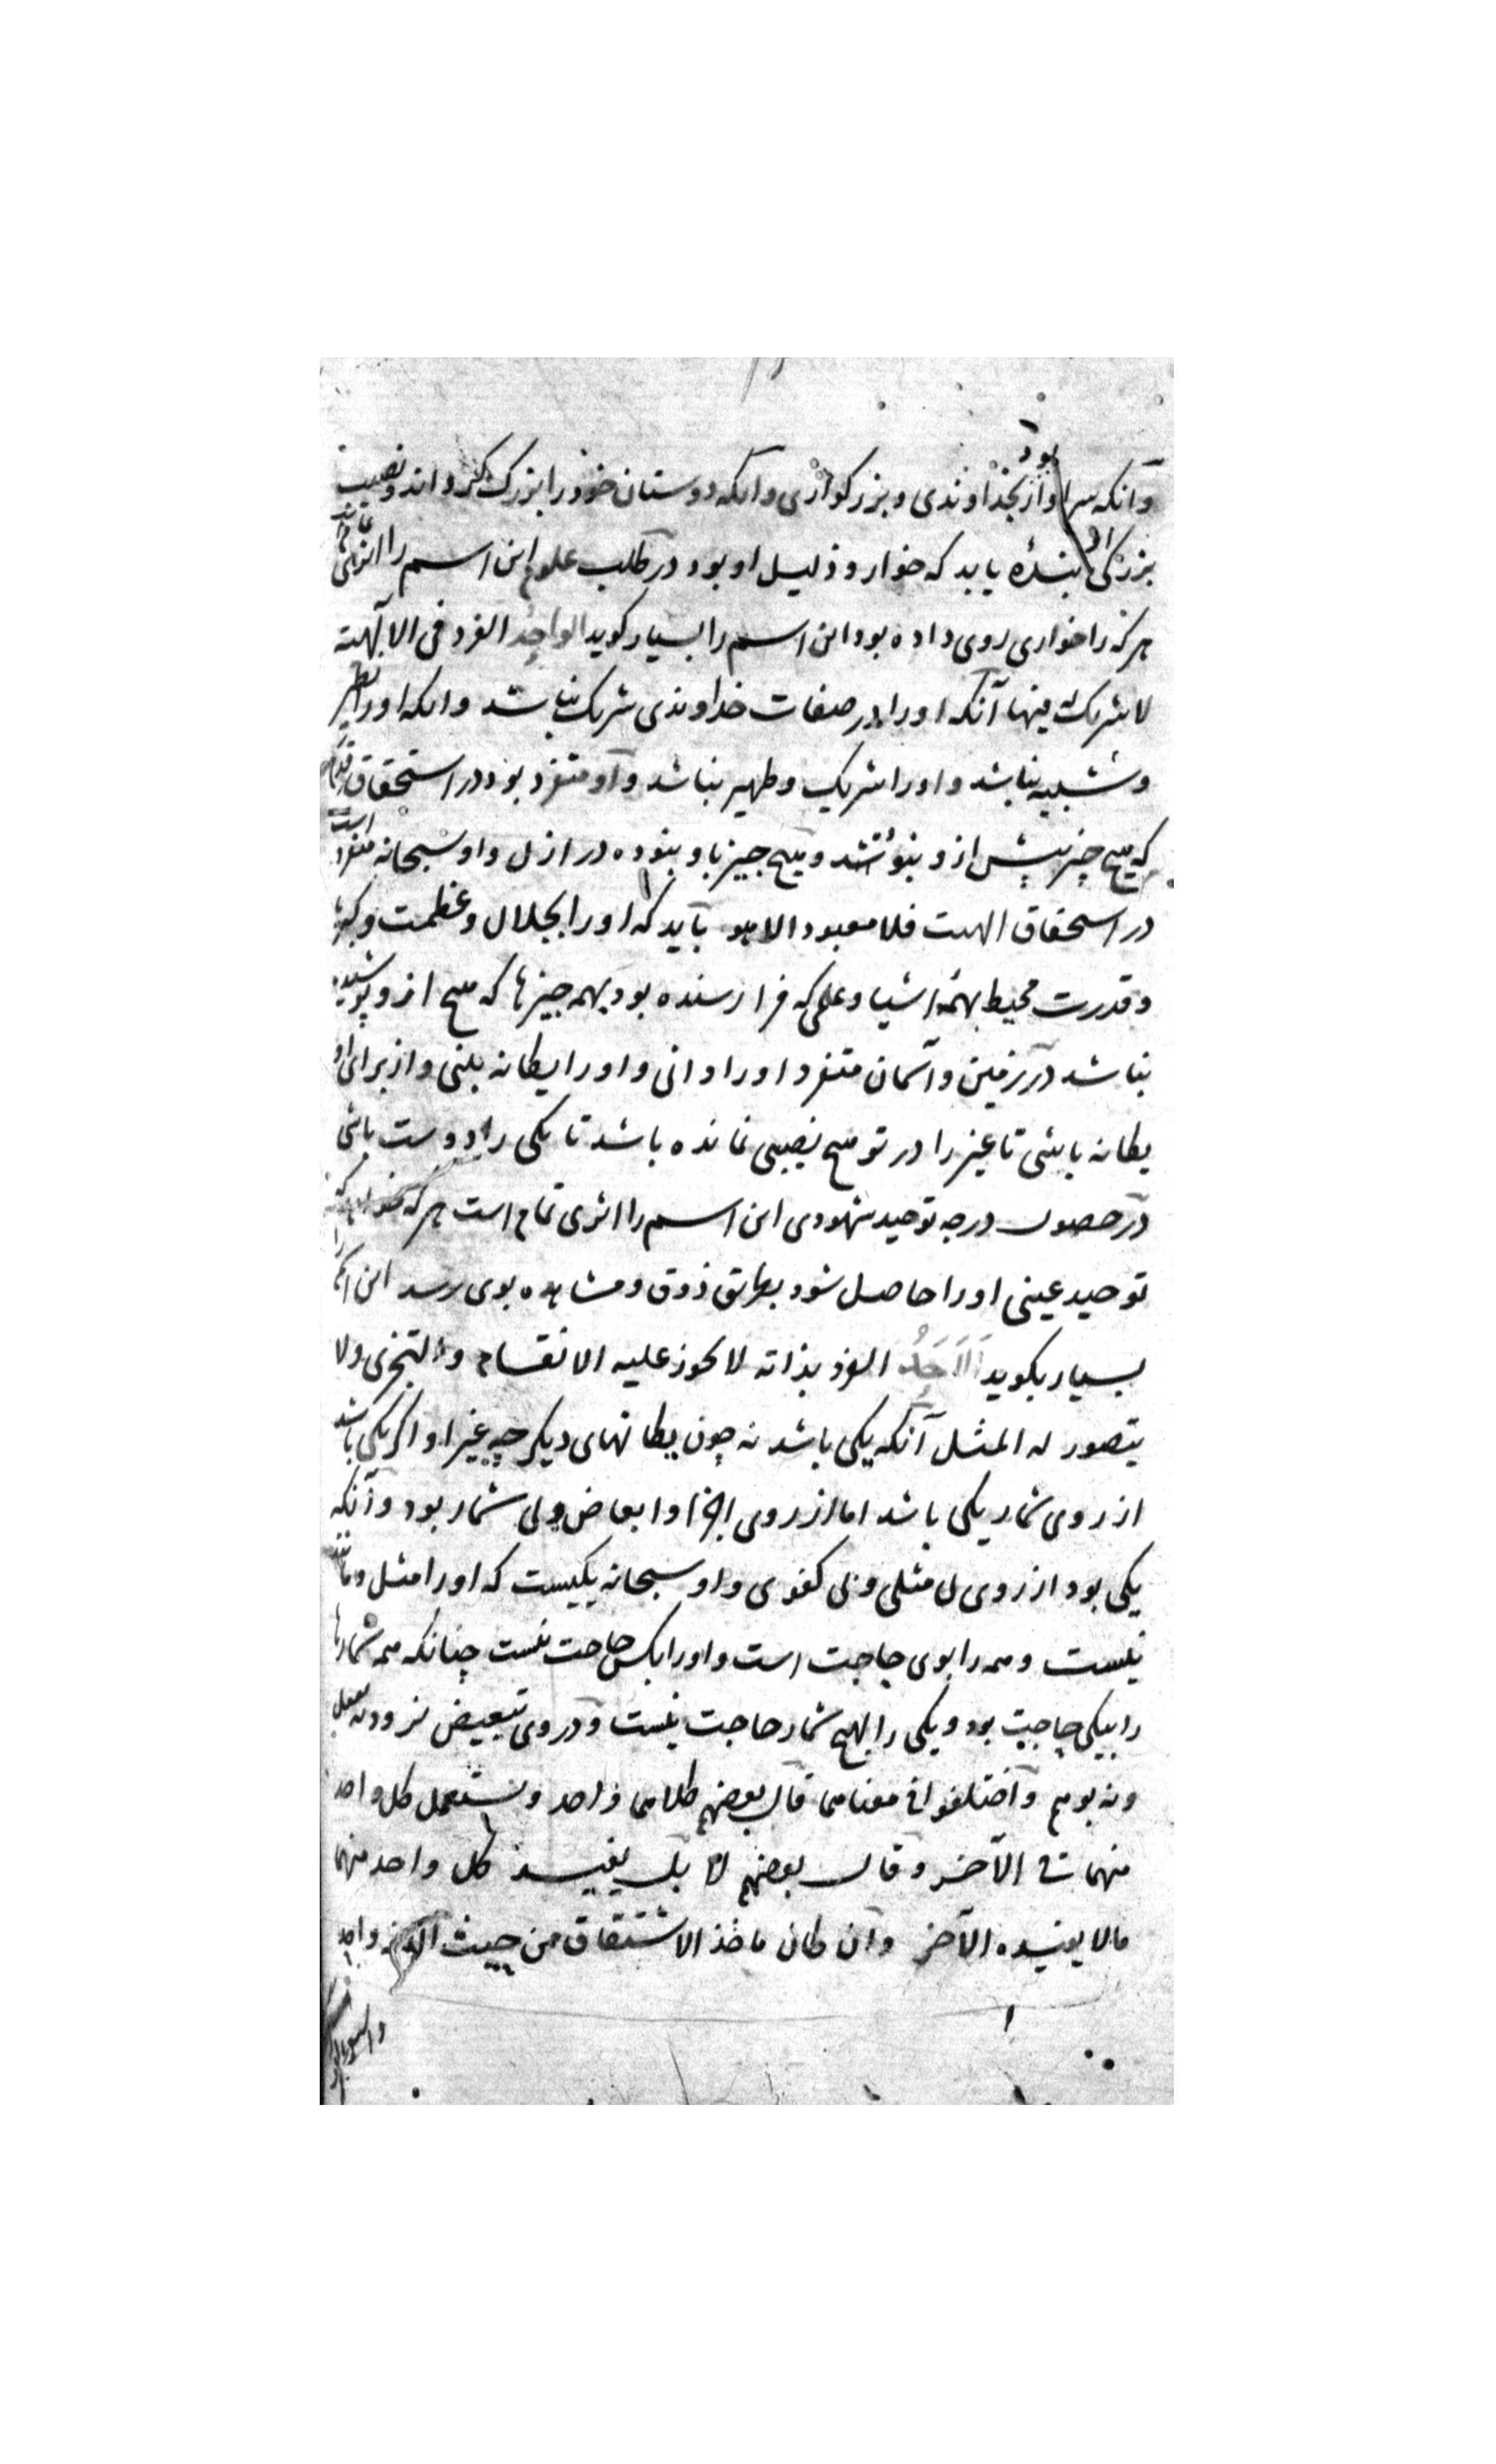 بود
وآنکه سزاوار بخداوندی و بزرکواری وآنکه دوستان خود را بزرک کرداند و نصیب
بزرکی بندۀ یابد که خوار و ذلیل او بود در طلب علوم این اسم را اثری
هرکه را خواری روی داده بود این اسم را بسیار کوید الواحد الفرد فی الالٓهیته
لا شریک فیها آنکه او را در صفات خداوندی شریک نباشد وانکه او را نظیر
و شبیه نباشد و او را شریک و ظهیر نباشد و او متفرد بود در استحقاق قدم
که هیچ چیز پیش ازو نبود و هیچ چیز باو نبوده در ازل و او سبحانه متفرد است
در استحقاق الهیت فلا معبود الا هو باید که او را بجلال و عظمت و کبریا
و قدرت محیط بهمه اشیا و علمی که فرا رسنده بود بهمه چیزها که هیچ ازو پوشیده
نباشد در زمین و آسمان متفرد او را دانی و او را یکانه بینی و از برای او
یکانه باشی تا غیر را در تو هیچ نصیبی نمانده باشد تا یکی را دوست باشی
در حصول درجه توحید شهودی این اسم را اثری تمام است هرکه خواهد که
توحید عینی او را حاصل شود بطریق ذوق و مشاهده بوی رسد این اسم را
بسیار بکوید اَلاَحَدُ الفرد بذاته لا یجوز علیه الانقسام والتجزی ولا
یتصور له المثل آنکه یکی باشد نه چون یکانهای دیکر چه غیر او اکر یکی باشد
از روی شمار یکی باشد اما از روی اجزا و ابعاض ولی شمار بود و آنکه
یکی بود از روی بی مثلی و بی کفوی و او سبحانه یکیست که او را مثل و مانند
نیست و همه را بوی حاجت است و او را بکس حاجت نیست چنانکه همه شمارها
را بیکی حاجت بود و یکی را بهیچ شمار حاجت نیست و در وی تبعیض نرود نه بفعل
و نه بوهم واختلفوا فی معناهما قال بعضهم کلاهما واحد ویستعمل کل واحد
منهما فی الآخر وقال بعضهم لا بل یفید کل واحد منهما
مالا یفیده الآخر وان کان ماخذ الاشتقاق من حیث واحد